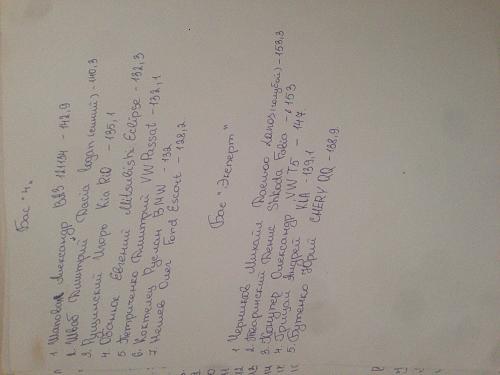 Бас "4"
1 Шаповал Александр ВАЗ 21134 - 142,9
2. Швоб Дмитрий Dacia Logan (синий) - 140,3
3. Пушинский Игорь Kia Rio - 135,1
4. Обанюк Евгений Mitsubishi Eclipse - 132,3
5 Петриченко Дмитрий VW Passat - 132,1
6. Коктелец Руслан BMW - 132
7 Нешев Олег Ford Escort - 128,2
Бас "Эксперт"
1 Черников Михаил Daewoo Lanos (голубой) - 153,3
2. Тваринский Денис Shkoda Fabia - 153
3. Александр VW T5 - 147
4. Грицай Андрей KIA - 139,1
5. Бутенко Юрий CHERY QQ - 138,9